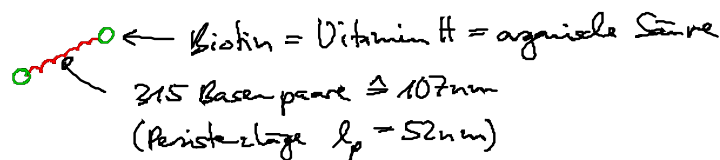 ← Biotin = Vitamin H = organische Säure
315 Basenpaare ≙ 107nm
(Persistenzlänge lₚ = 52nm)